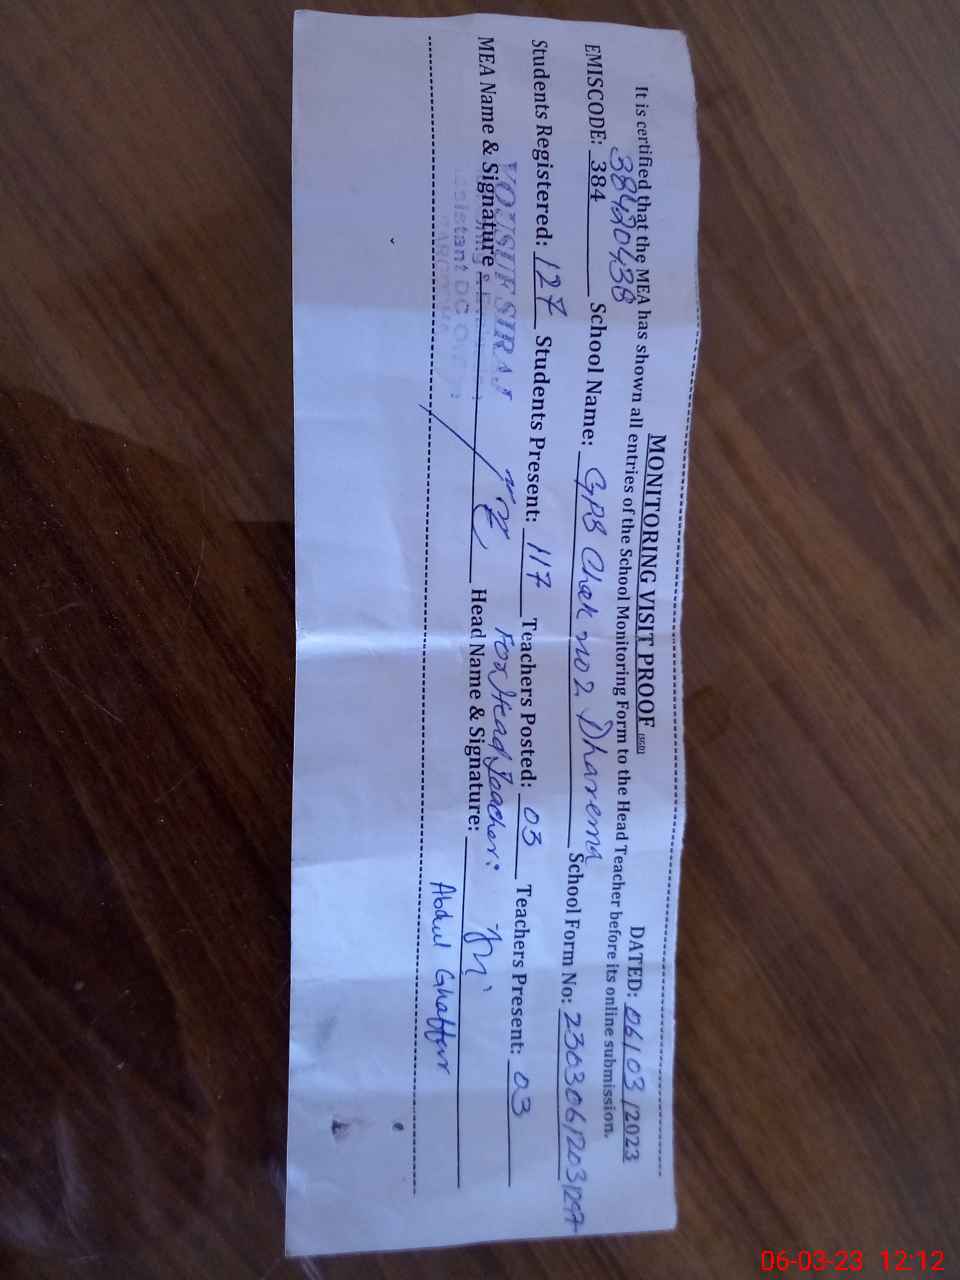 MONITORING VISIT PROOF (SGD)
DATED: 06/03/2023
It is certified that the MEA has shown all entries of the School Monitoring Form to the Head Teacher before its online submission.
38420438
EMISCODE: 384 School Name: GPS Chak no 2 Dharema School Form No: 23030612031297
Students Registered: 127 Students Present: 117 Teachers Posted: 03 Teachers Present: 03
YOUSUF SIRAJ
For Head Teacher:
MEA Name & Signature: Head Name & Signature:
Assistant DC
Abdul Ghaffar
06-03-23 12:12